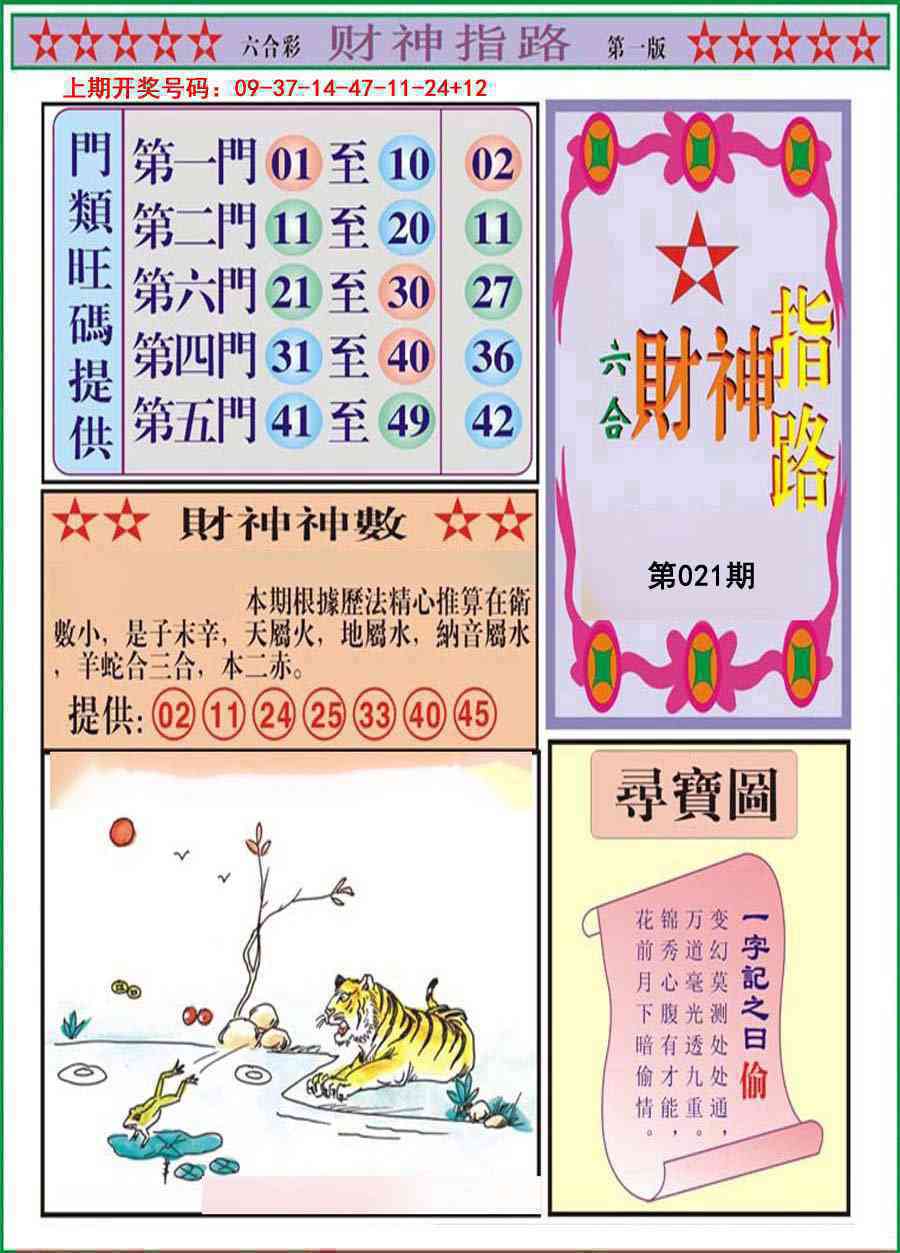 六合彩 财神指路 第一版
上期开奖号码：09-37-14-47-11-24+12
門類旺碼提供
第一門 01 至 10 02
第二門 11 至 20 11
第六門 21 至 30 27
第四門 31 至 40 36
第五門 41 至 49 42
六合 財神 指路
第021期
財神神數
本期根據歷法精心推算在衛
數小，是子末辛，天屬火，地屬水，納音屬水
，羊蛇合三合，本二赤。
提供: 02 11 24 25 33 40 45
尋寶圖
一字記之曰 偷
变幻莫测处处通，
万道毫光透九重。
锦秀心腹有才能，
花前月下暗偷情。